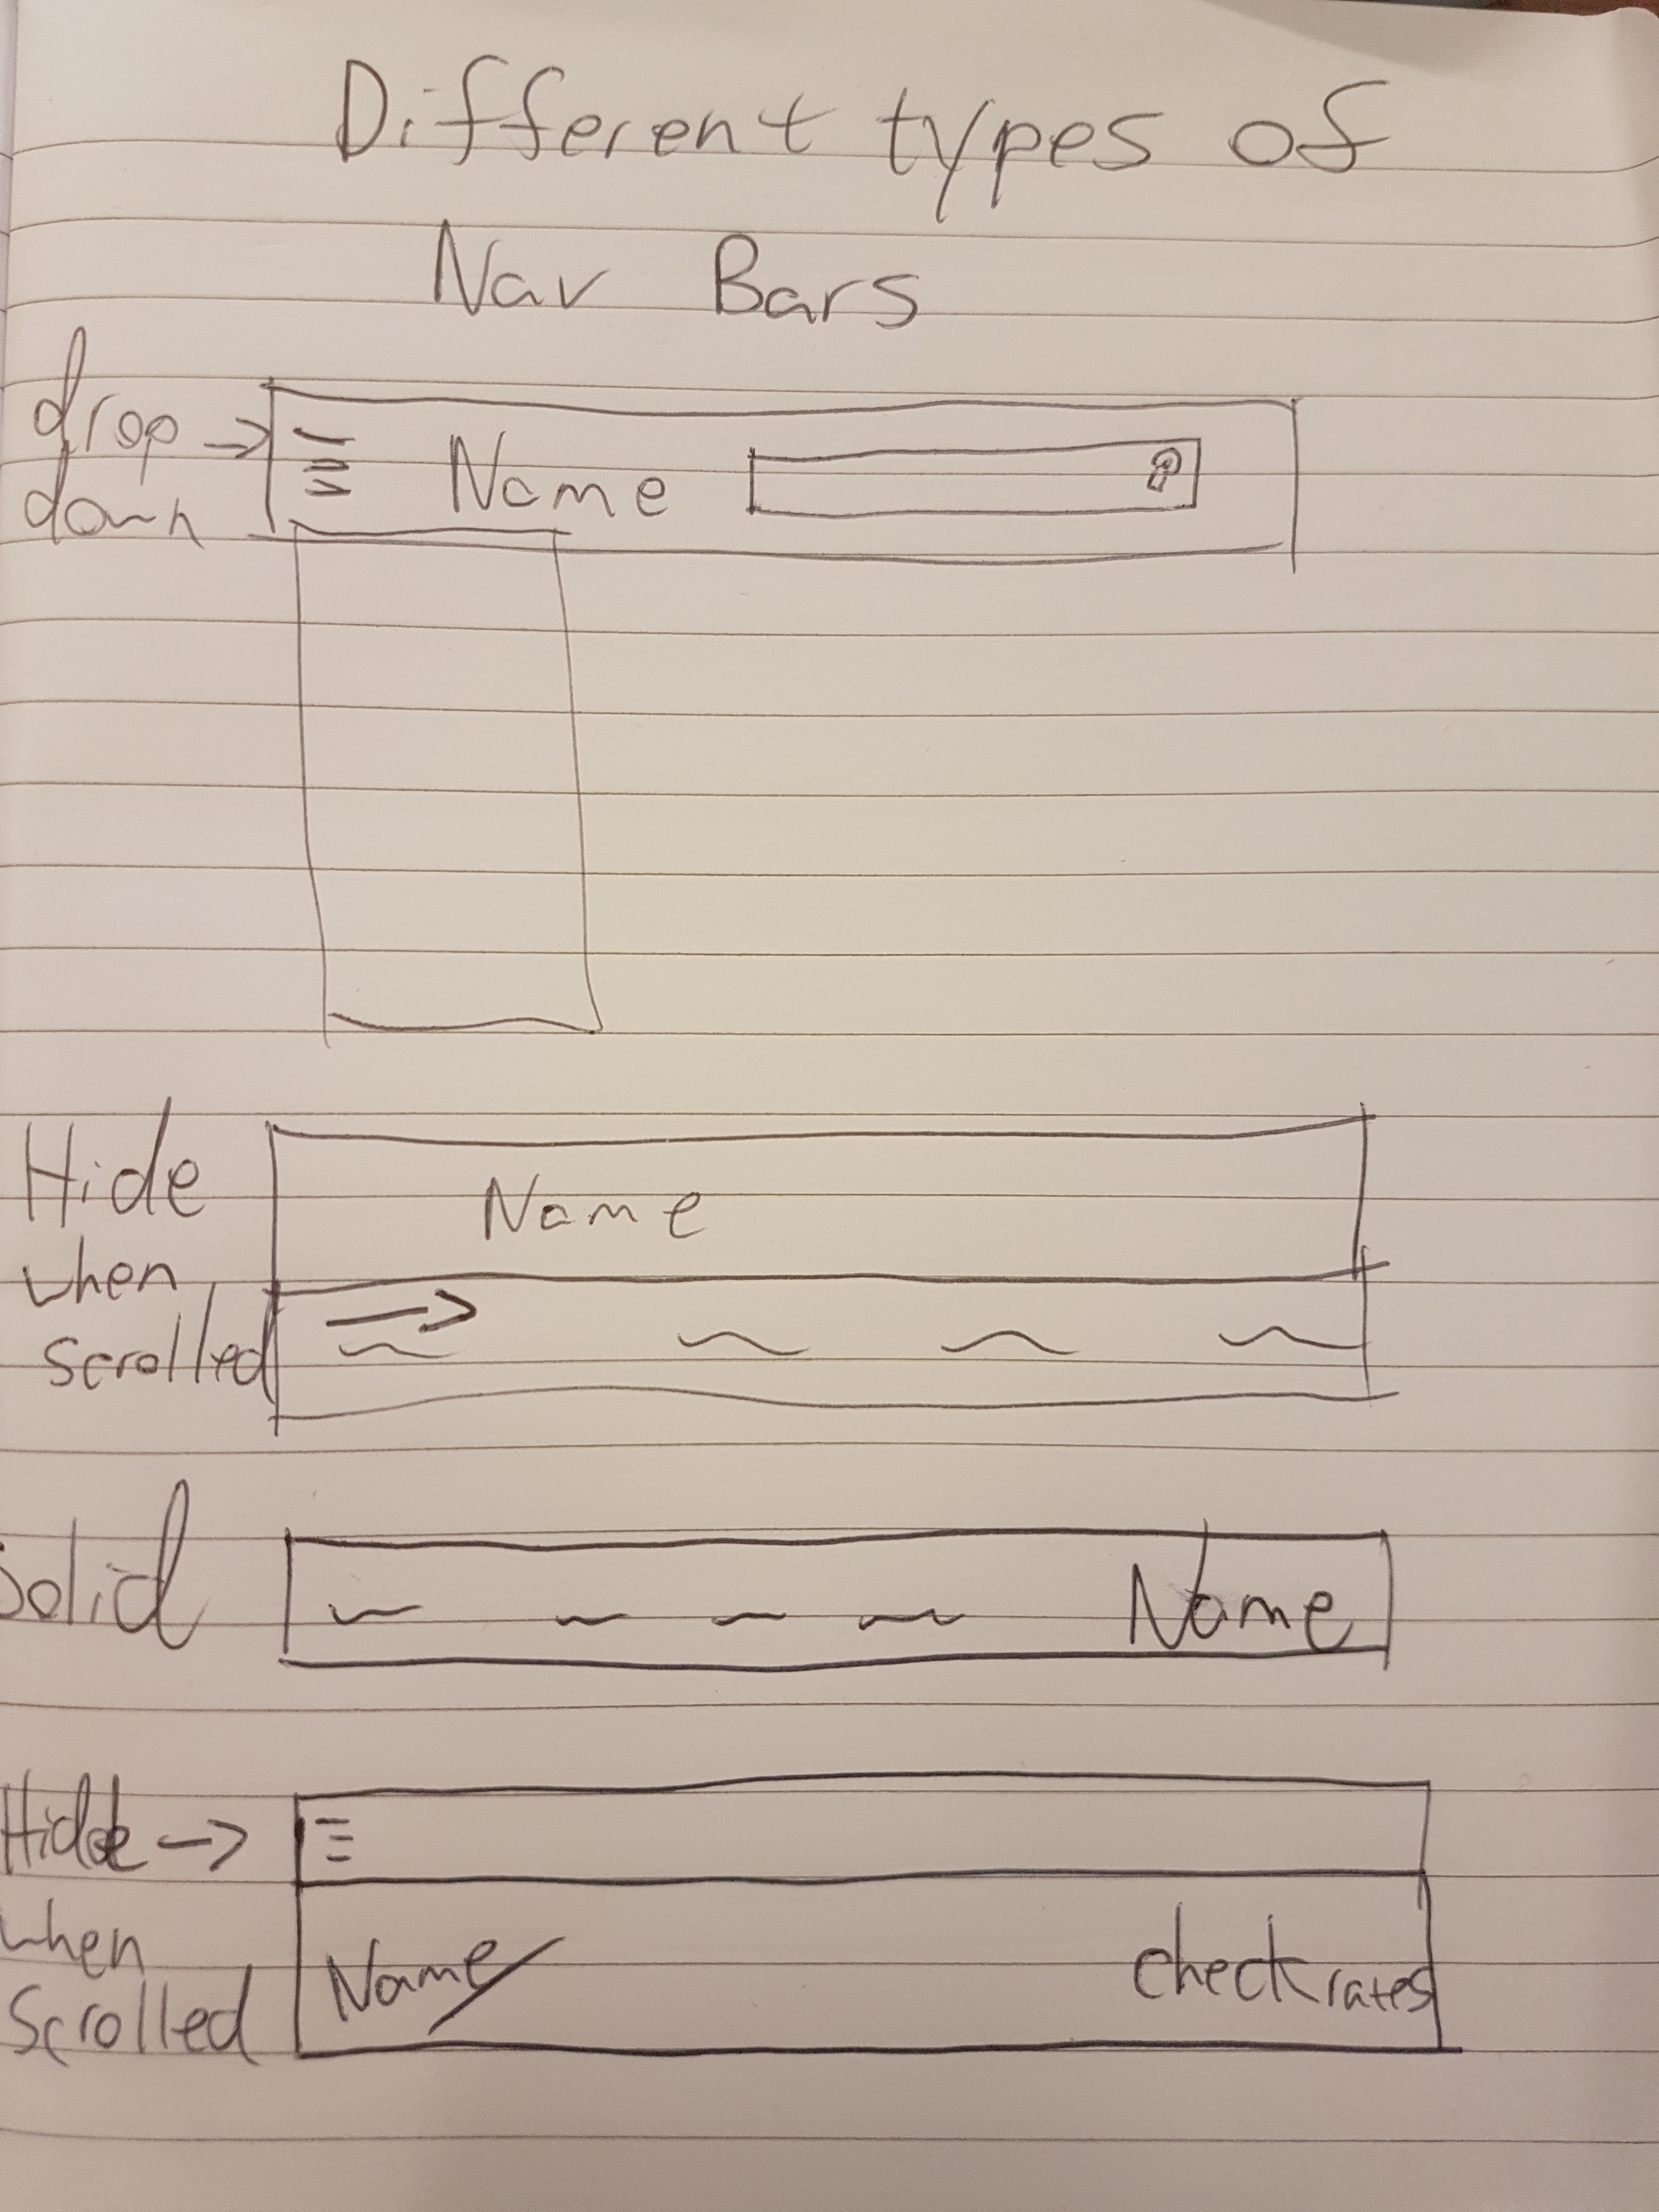 Different types of
Nav Bars
drop →
down
Name
Hide
when
scrolled
Name
Solid
Name
Hide →
when
Scrolled
Name
check rates